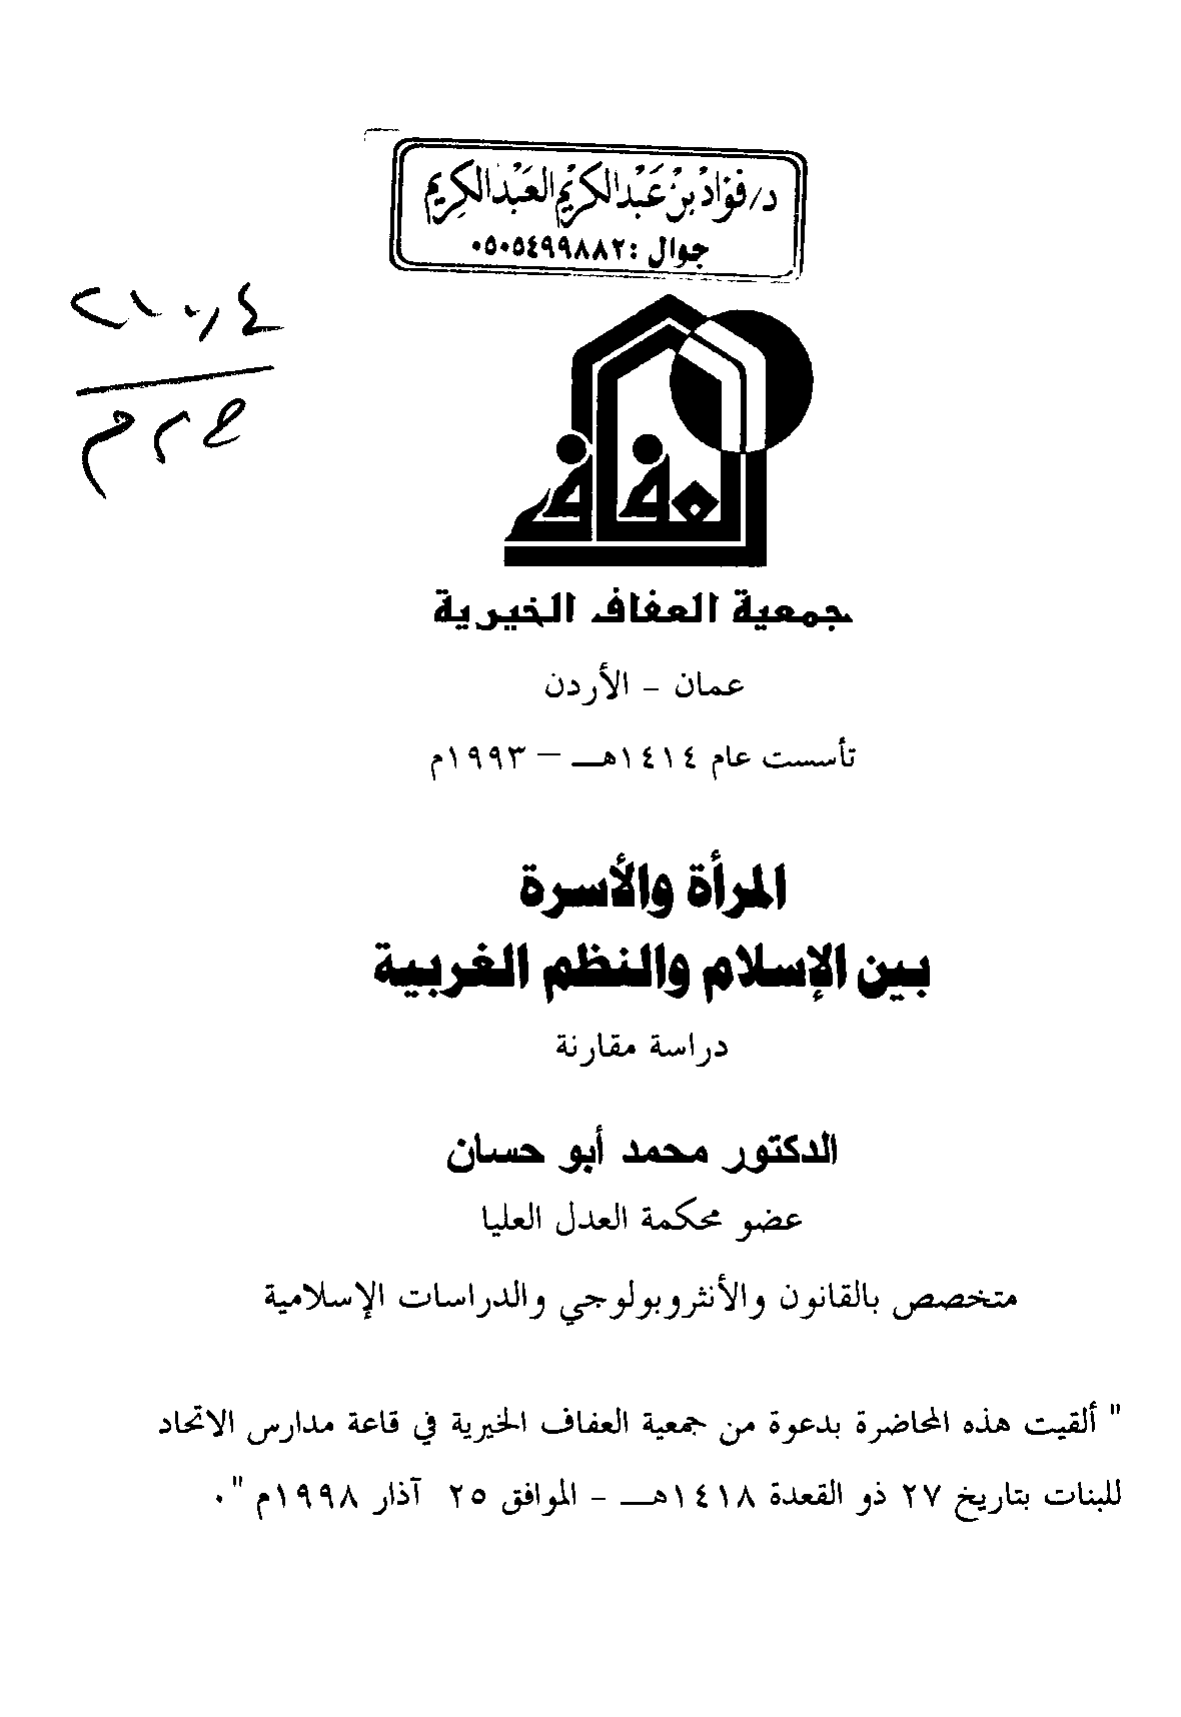 د/فؤاد بن عَبْد الكريم العَبْد الكريم
جوال : ٠٥٠٥٤٩٩٨٨٢
العفاف
جمعية العفاف الخيرية
عمان - الأردن
تأسست عام ١٤١٤هـ - ١٩٩٣م
المرأة والأسرة
بين الإسلام والنظم الغربية
دراسة مقارنة
الدكتور محمد أبو حسان
عضو محكمة العدل العليا
متخصص بالقانون والأنثروبولوجي والدراسات الإسلامية
" ألقيت هذه المحاضرة بدعوة من جمعية العفاف الخيرية في قاعة مدارس الاتحاد
للبنات بتاريخ ٢٧ ذو القعدة ١٤١٨هـ - الموافق ٢٥ آذار ١٩٩٨م ".